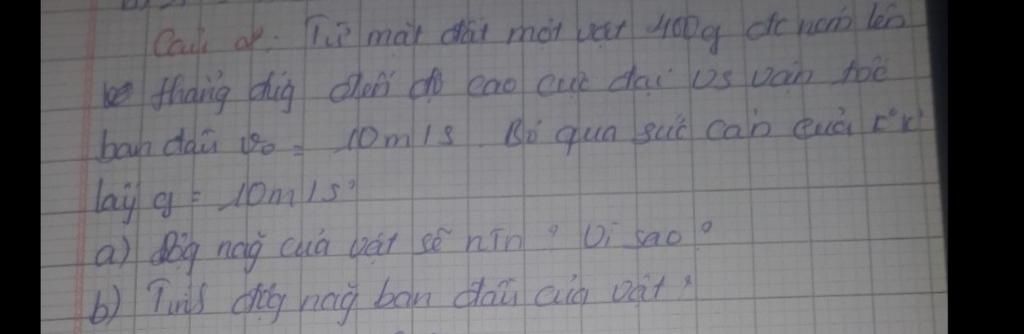 Câu 2: Từ mặt đất một vật 400g đc ném lên
thẳng đứg đến độ cao cực đại vs vận tốc
ban đầu v₀ = 10m/s. Bỏ qua sức cản của k²k²
lấy g = 10m/s²
a) Độg năg của vật sẽ ntn? Vì sao?
b) Tính độg năg ban đầu của vật?